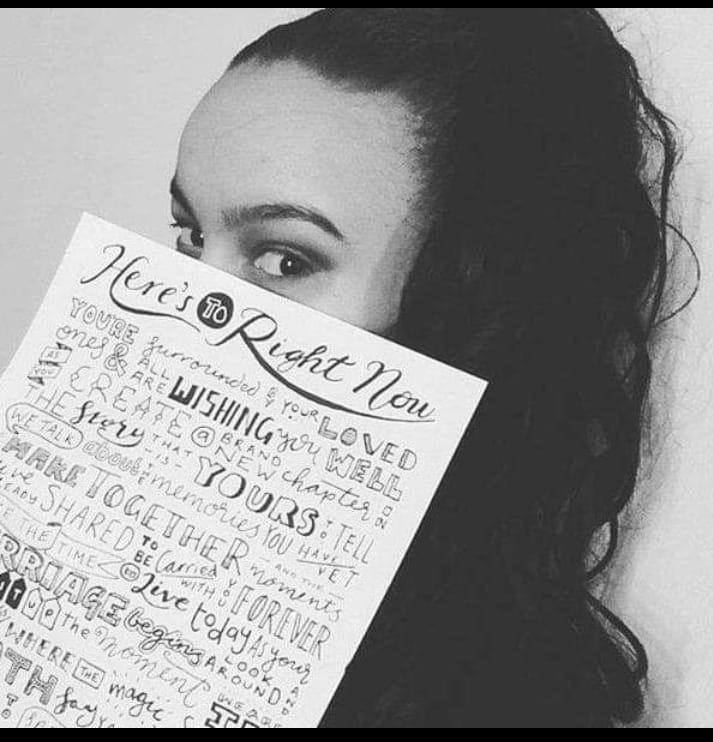 Here's TO Right Now
YOU'RE surrounded BY YOUR LOVED
ones & ALL ARE WISHING you WELL
AS YOU CREATE @ BRAND NEW chapter ON
THE story THAT -IS- YOURS TO TELL
WE TALK about THE memories YOU HAVE YET
MAKE TOGETHER AND THE moments
SHARED TO BE carried WITH YOU FOREVER
THE TIME Live today AS your
RRIAGE begins LOOK AROUND AND
IT UP the moment WE ARE
WHERE THE magic
TH say